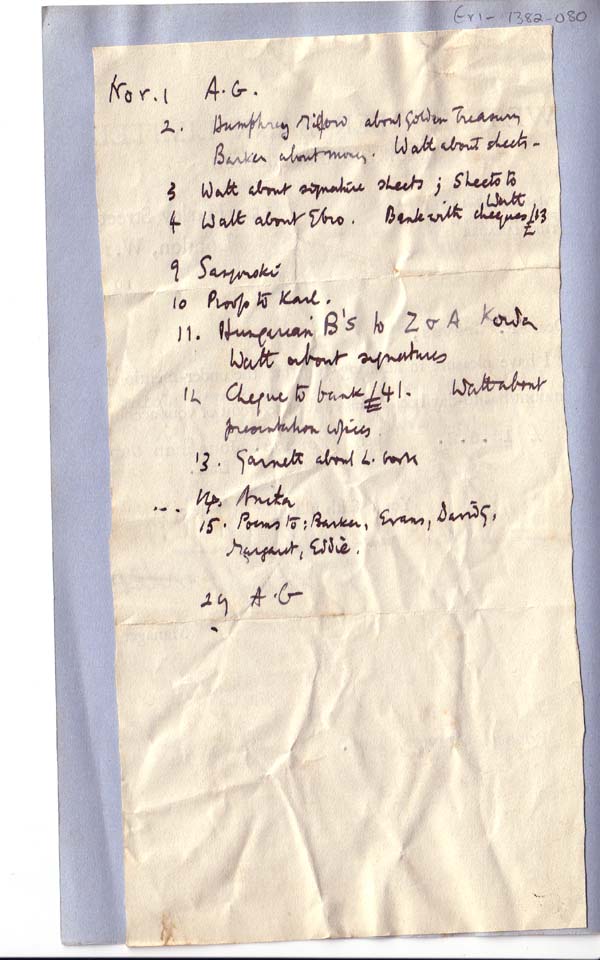 Er1-1382-080
Nov. 1 A.G.
2. Humphrey Milford about Golden Treasury
Barker about money. Watt about sheets -
3 Watt about signature sheets; Sheets to
Watt
4 Watt about Ebro. Bank with cheques £13
9
10 Proofs to Karl.
11. Hungarian B's to Z & A Korda
Watt about signatures
12 Cheque to bank £41. Watt about
presentation copies
13. Garnett about L. book
... 14. Anita
15. Poems to: Barker, Evans, David G,
Margaret, Eddie.
29 A.G